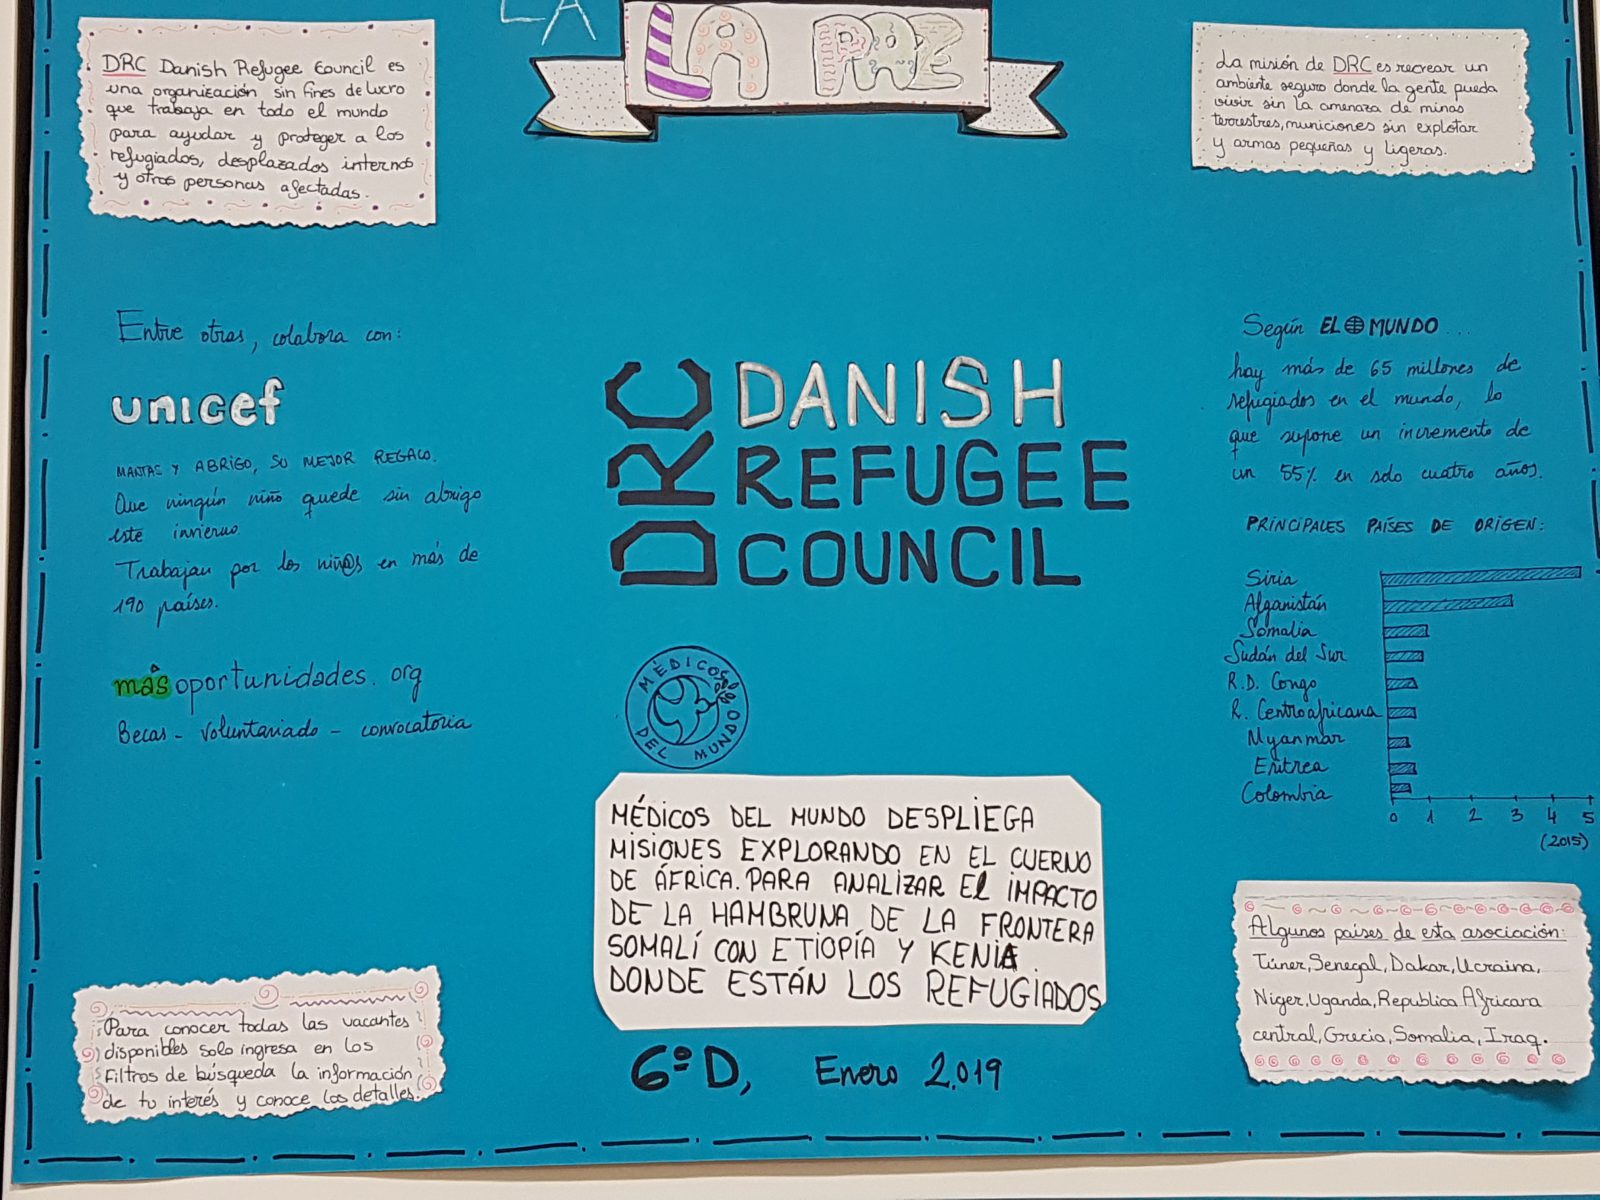 LA
LA PAZ
DRC Danish Refugee Council es
una organización sin fines de lucro
que trabaja en todo el mundo
para ayudar y proteger a los
refugiados, desplazados internos
y otras personas afectadas.
La misión de DRC es recrear un
ambiente seguro donde la gente pueda
vivir sin la amenaza de minas
terrestres, municiones sin explotar
y armas pequeñas y ligeras.
Entre otras, colabora con:
unicef
MANTAS Y ABRIGO, SU MEJOR REGALO.
Que ningún niño quede sin abrigo
este invierno.
Trabajan por los niñ@s en más de
190 países.
másoportunidades.org
Becas - voluntariado - convocatoria
Para conocer todas las vacantes
disponibles solo ingresa en los
Filtros de búsqueda la información
de tu interés y conoce los detalles.
DRC
DANISH
REFUGEE
COUNCIL
MÉDICOS DEL MUNDO
MÉDICOS DEL MUNDO DESPLIEGA
MISIONES EXPLORANDO EN EL CUERNO
DE ÁFRICA. PARA ANALIZAR El IMPACTO
DE LA HAMBRUNA DE LA FRONTERA
SOMALÍ CON ETIOPÍA Y KENIA
DONDE ESTÁN LOS REFUGIADOS
6º D, Enero 2.019
Según EL MUNDO...
hay más de 65 millones de
refugiados en el mundo, lo
que supone un incremento de
un 55% en solo cuatro años.
PRINCIPALES PAÍSES DE ORIGEN:
Siria
Afganistán
Somalia
Sudán del Sur
R.D. Congo
R. Centroafricana
Myanmar
Eritrea
Colombia
0 1 2 3 4 5
(2015)
Algunos países de esta asociación:
Túner, Senegal, Dakar, Ucraina,
Niger, Uganda, Republica Africana
central, Grecia, Somalia, Iraq.